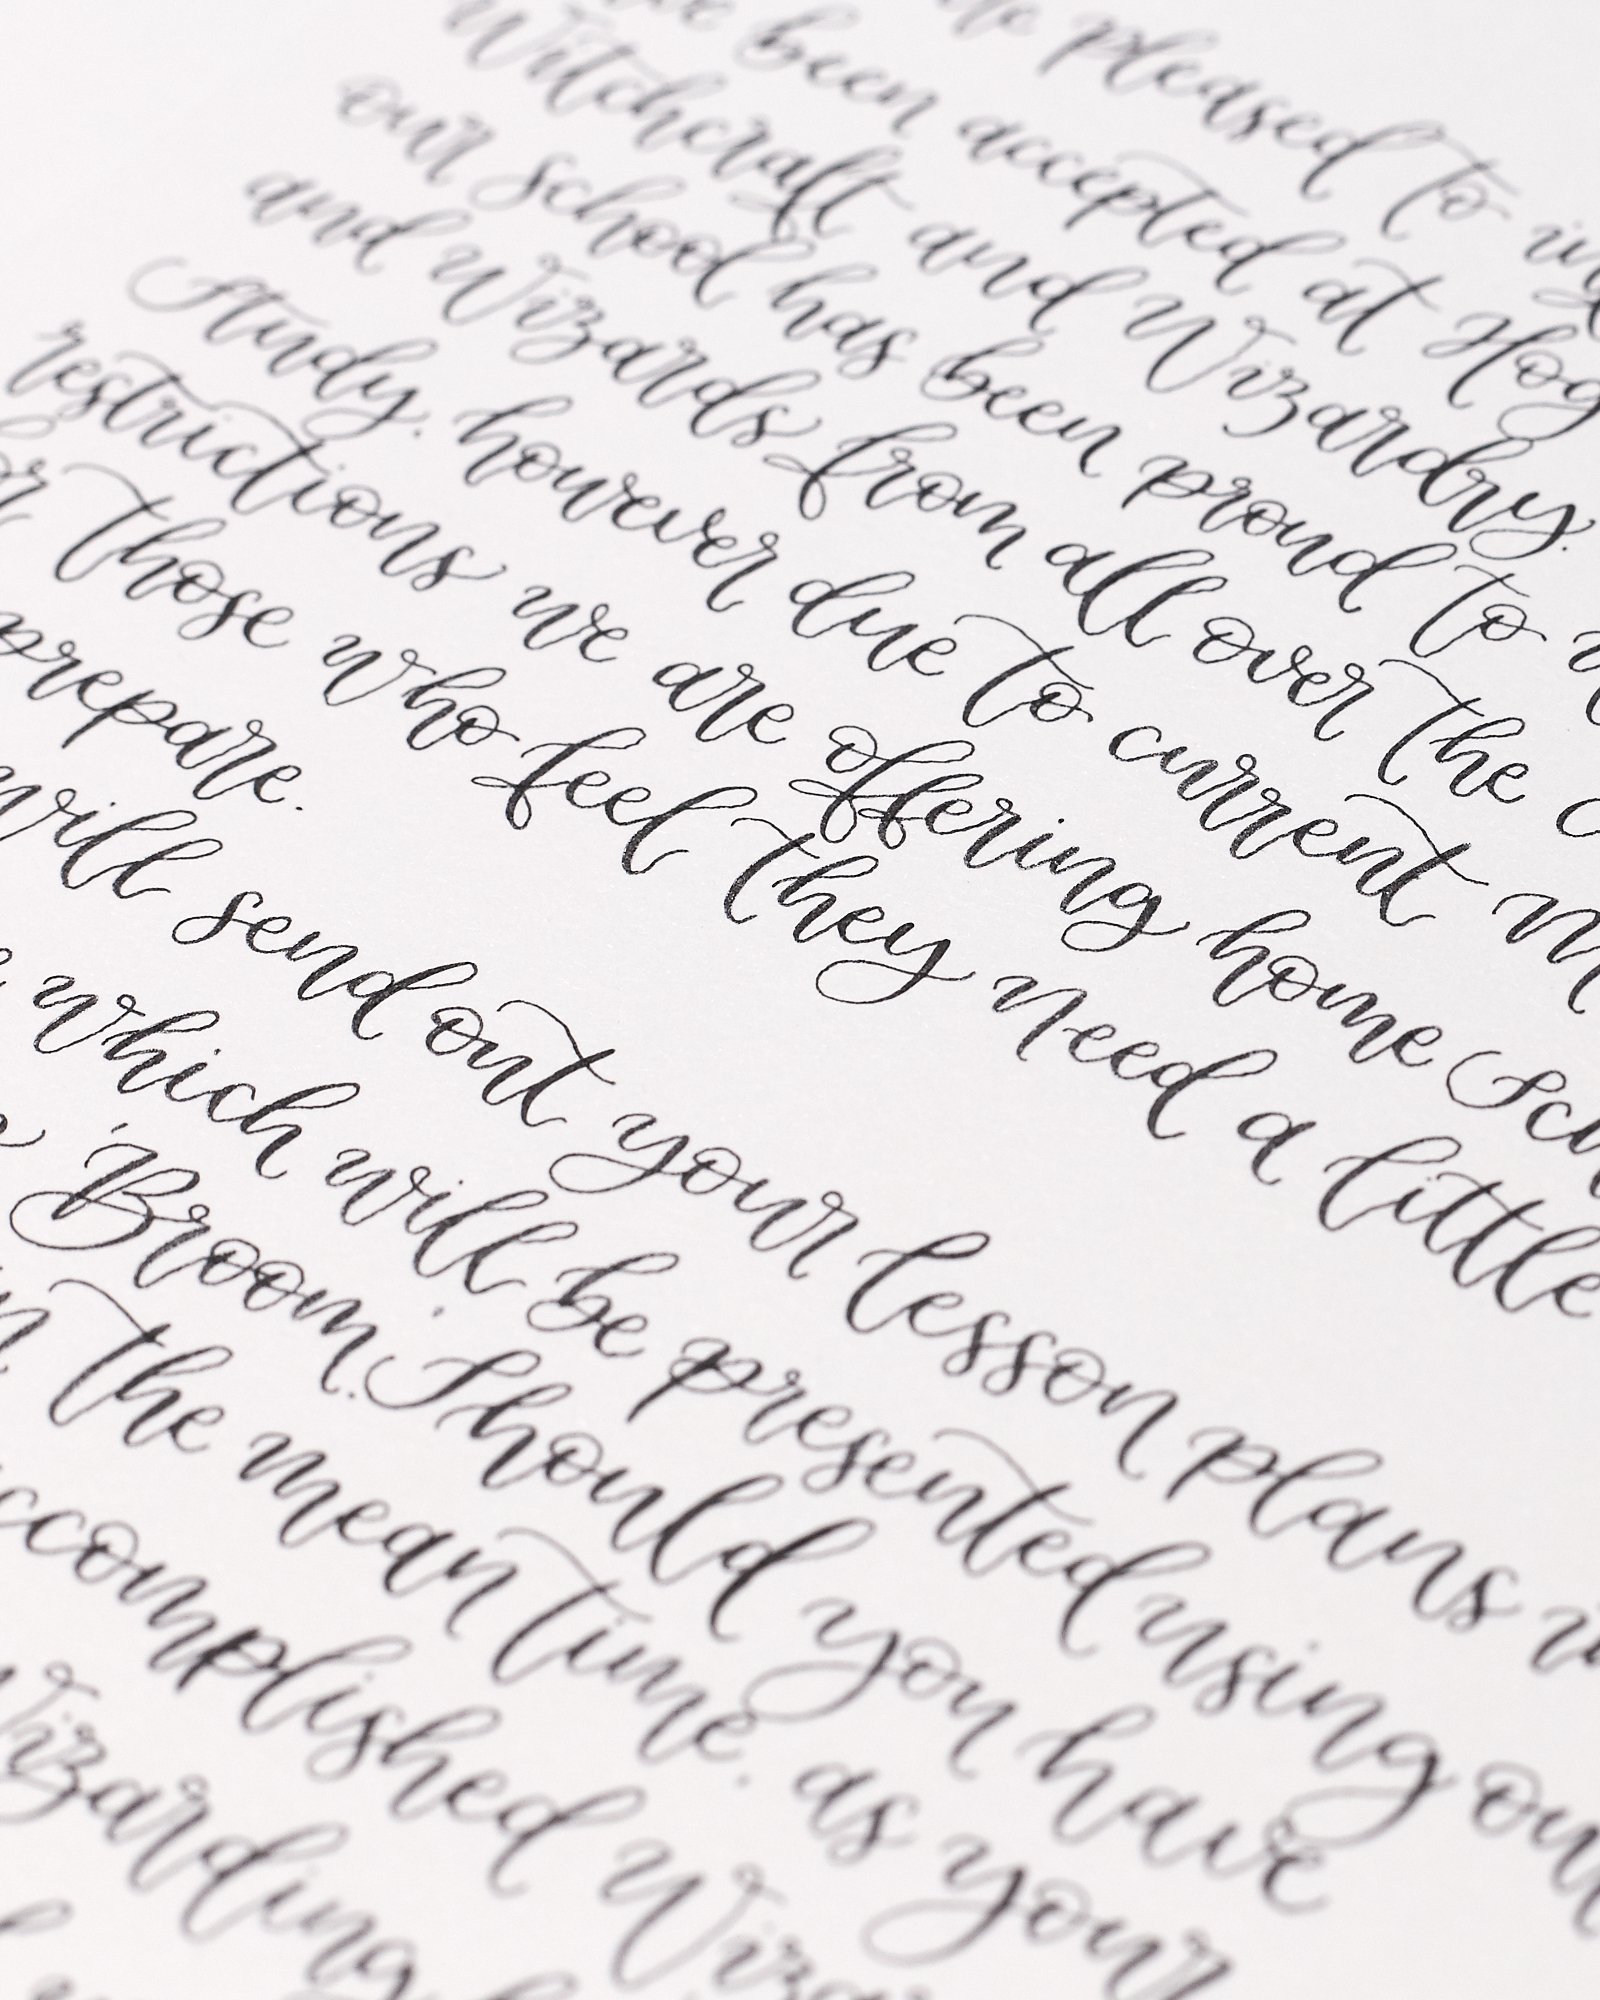 pleased to
been accepted at Hog
Witchcraft and Wizardry.
our school has been proud to
and Wizards from all over the
Study, however due to current
restrictions we are offering home Sch
those who feel they need a little
prepare.
will send out your lesson plans
which will be presented using our
'Broom'. Should you have
the mean time, as your
ccomplished Wiza
Wizarding